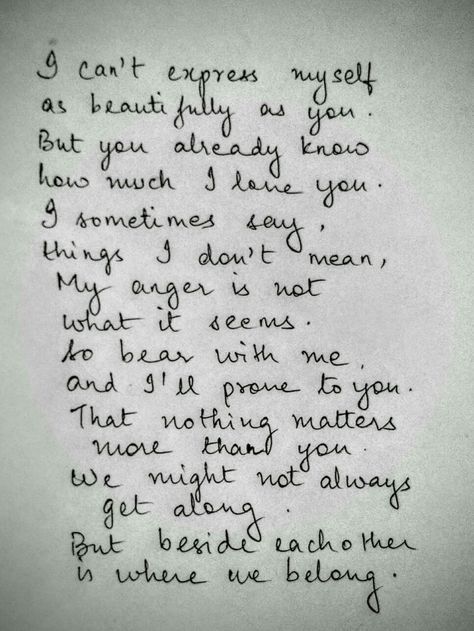 I can't express myself
as beautifully as you.
But you already know
how much I love you.
I sometimes say,
things I don't mean,
My anger is not
what it seems.
So bear with me,
and I'll prove to you.
That nothing matters
more than you.
We might not always
get along.
But beside eachother
is where we belong.